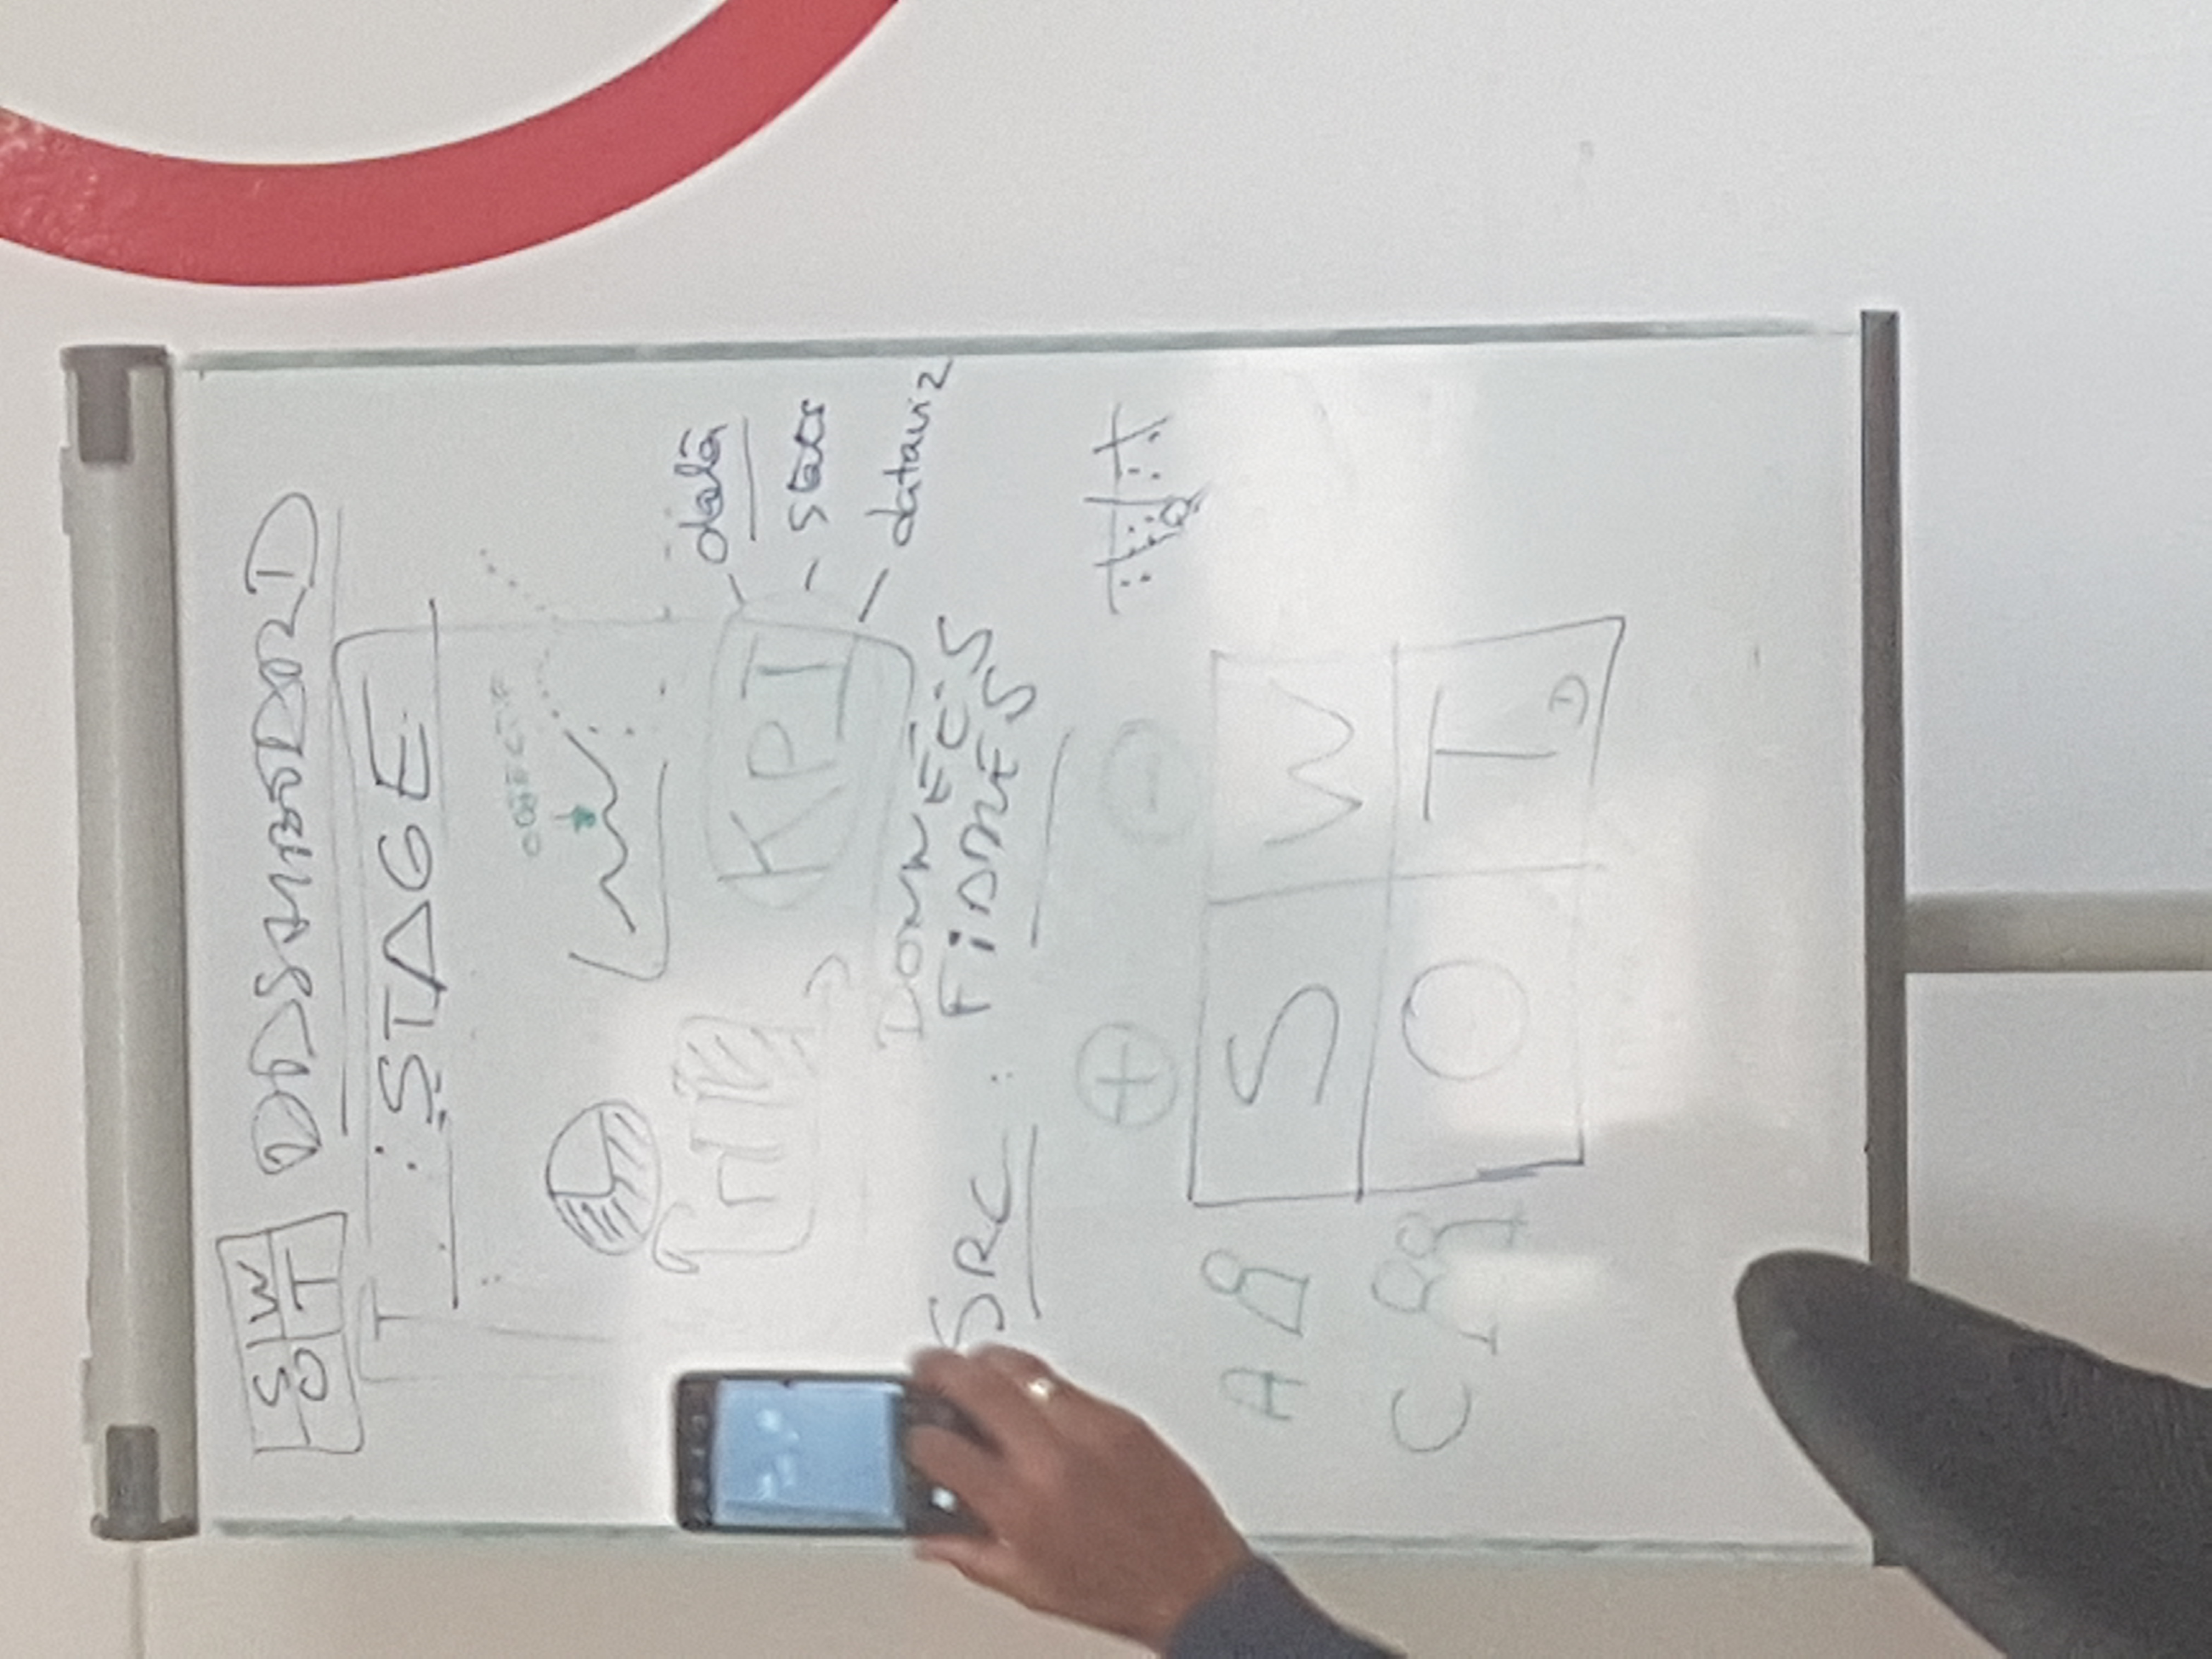 S W
O T
DASHBOARD
T : STAGE
OBJECTIF
data
KPI
stats
dataviz
DONNÉES
SRC : FIABLES
+ -
A S W
C O T
D